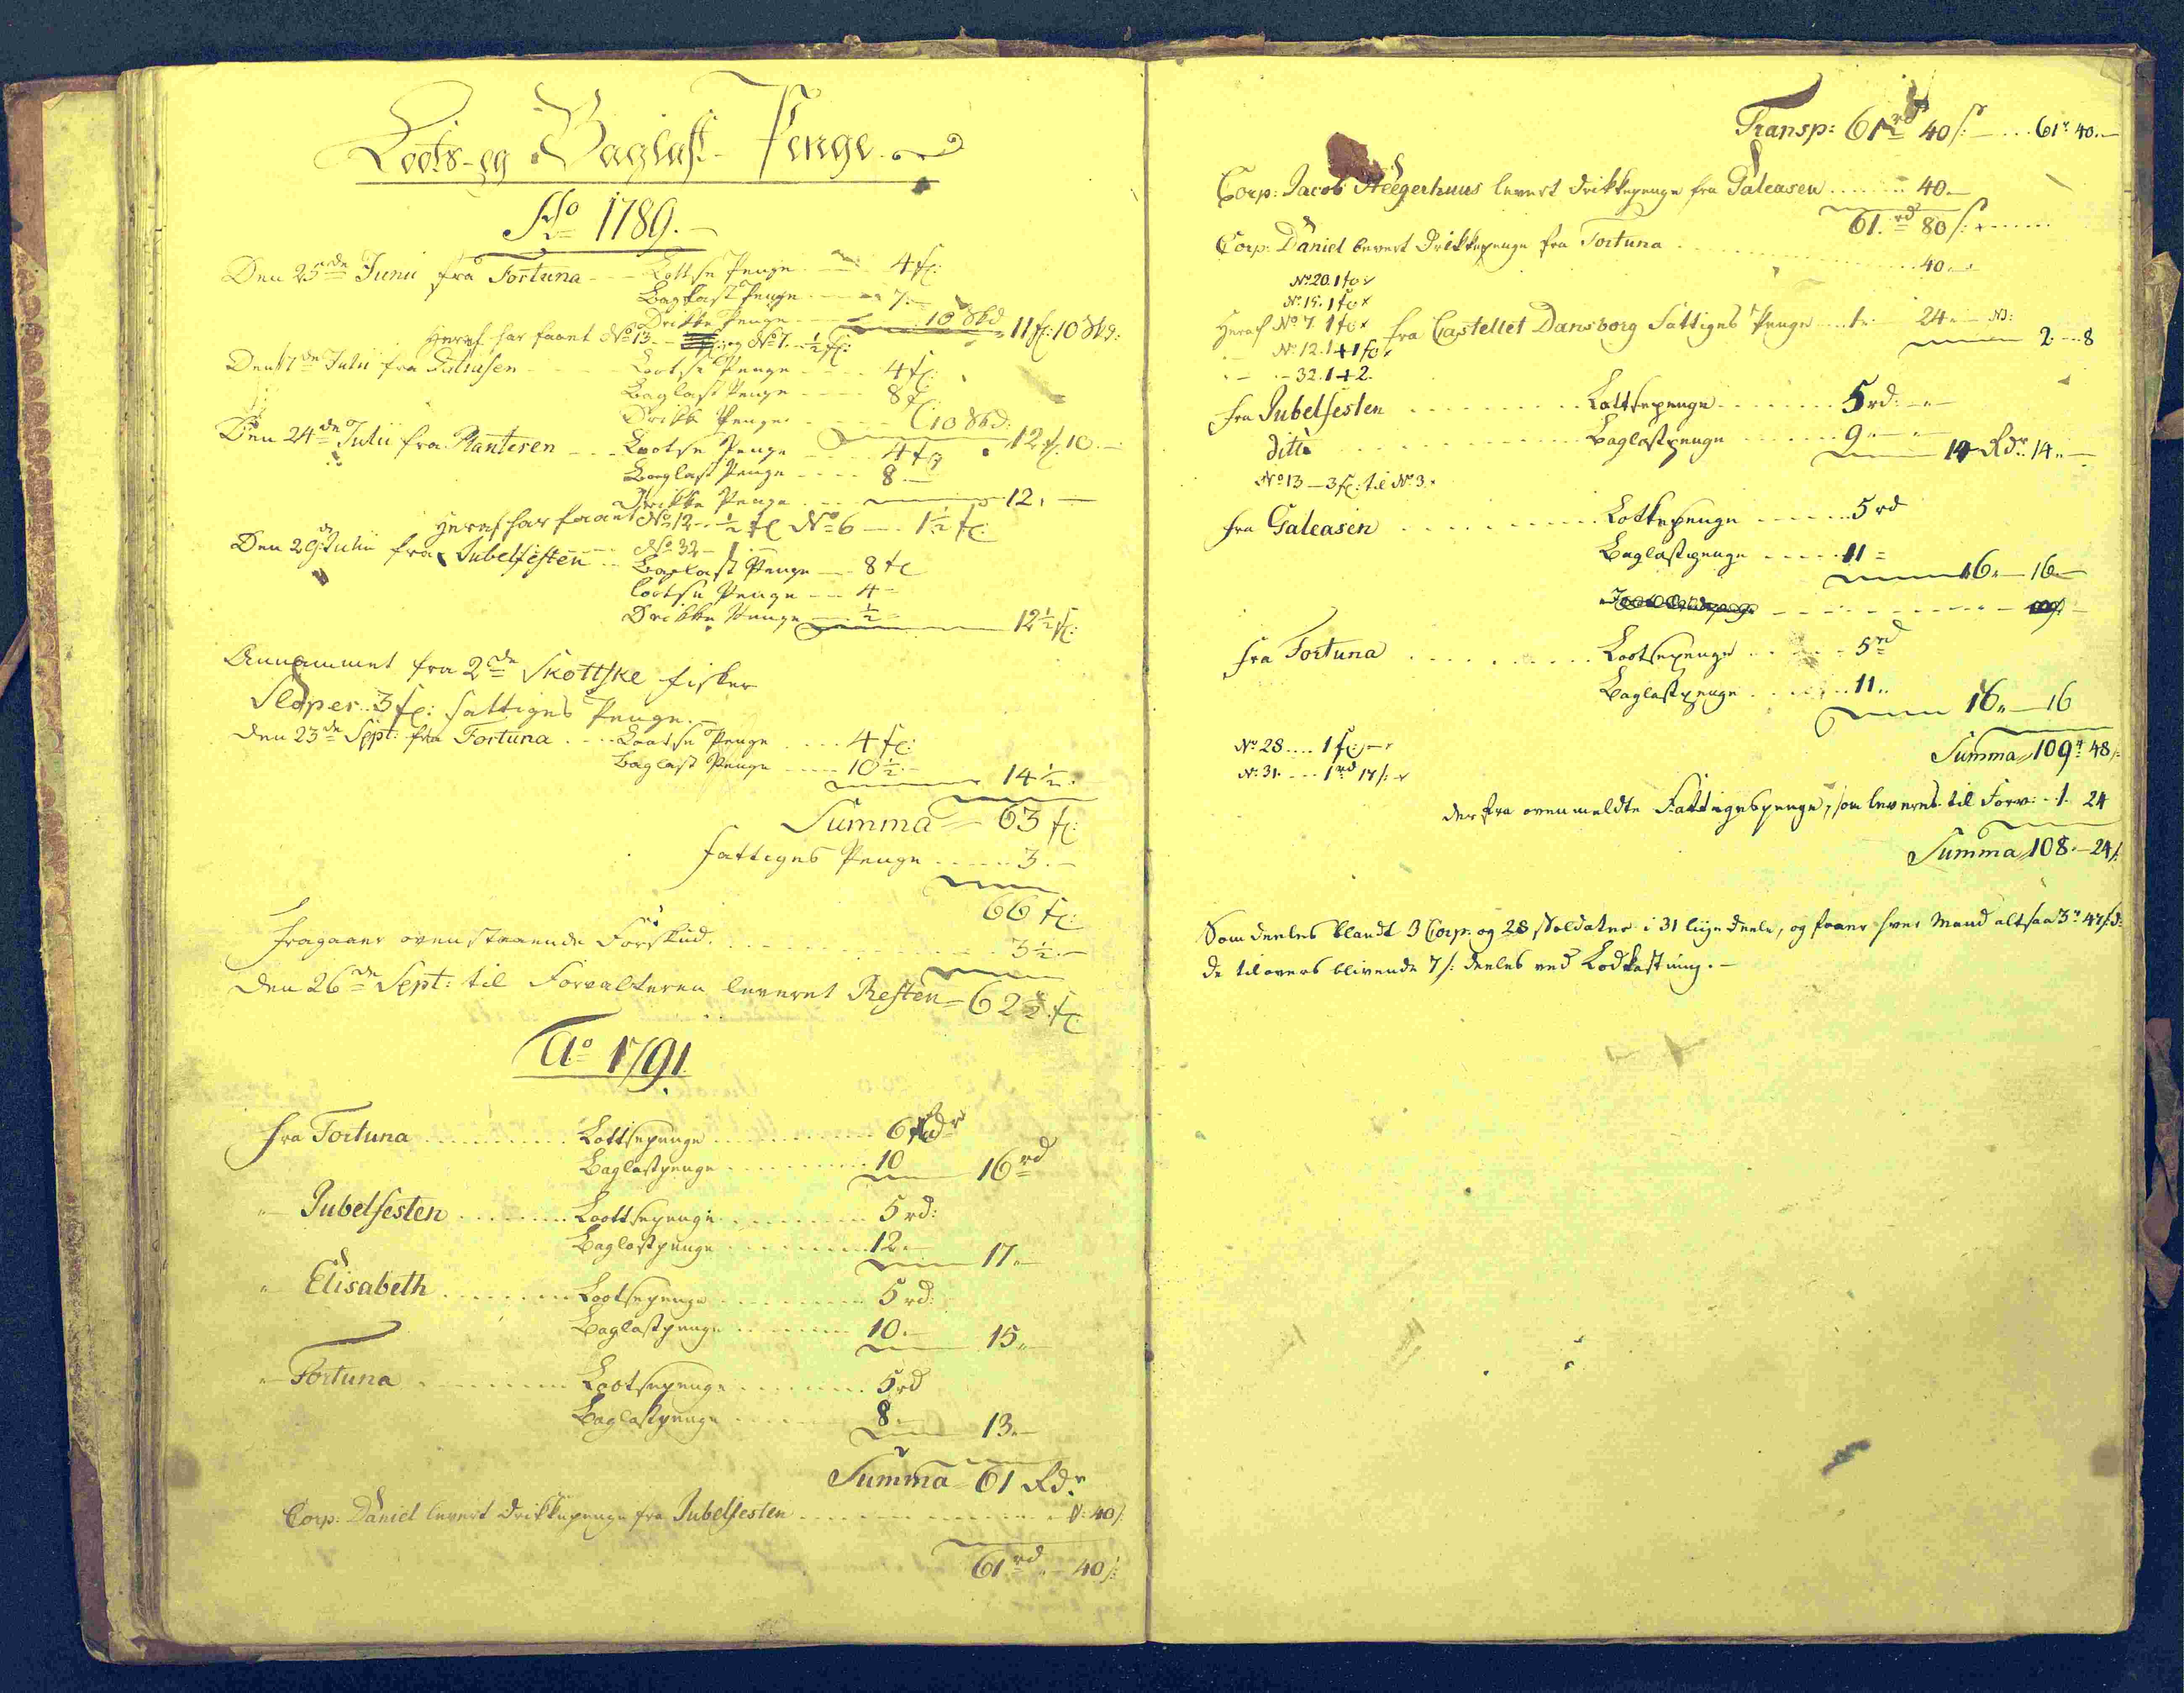 Loots- og Baglast- Penge.
Ao 1789.
Den 23de Junii fra Fortuna - - Lottse Penge - - 4 fl:
Baglast Penge - - 7.-
Drikke Penge - - 10 Skd 11 fl: 10 Skd:
Heraf har faaet No 13 - og No 7. - ½ fl:
Den 17de Julii fra Galiasen - - Lootse Penge - - 4 fl:
Baglast Penge - - 8 fl
Drikk Penge - - 10 Skd: 12 fl. 10.-
Den 24de Julii fra Planteren - - Lootse Penge - - 4 fl
Baglast Penge - - 8.-
Drikke Penge - - 12.-
Heraf har faaet No 12 - ½ fl No 6 - 1½ fl:
No 32 - 1
Den 29de Julii fra Jubelfesten - - Baglast Penge - - 8 fl
Lootse Penge - - 4 -
Drikke Penge - - ½ - 12½ fl:
Annammet fra 2de Skottske fisker
Sloper. 3 fl: fattiges Penge.-
den 23de Sept: fra Fortuna - - Lootse Penge - - 4 fl:
Baglast Penge - - 10½.- 14½.
Summa = 63 fl:
fattiges Penge - - 3.-
66 fl:
fragaaer ovenstaaende Forskud. - - 3½.-
den 26de Sept: til Forvalteren leveret Resten = 62½ fl:
Ao 1791
fra Fortuna - - Lottsepenge - - 6 Rdr
Baglastpenge - - 10 16 rd
" Jubelfesten - - Loottsepenge - - 5 rd:
Baglastpenge - - 12.- 17.-
" Elisabeth - - Lootsepenge - - 5 rd:
Baglastpenge - - 10.- 15.-
" Fortuna - - Lootsepenge - - 5 rd
Baglastpenge - - 8.- 13.-
Summa = 61 Rdr
Corp: Daniel levert Drikkepenge fra Jubelfesten - - 40 /:
61 rd - 40 /:
Transp: 61 rd 40 /: - - 61 r 40.-
Corp: Jacob Steegerhuus levert Drikkepenge fra Galeasen - - 40.-
61. rd 80 /:
Corp: Daniel levert Drikkepenge fra Fortuna - - 40.-
No 20. 1 fl
No 15. 1 fl
Heraf No 7. 1 fl fra Castellet Dansborg Fattiges Penge - - 1. 24.- 2 - 8
No 12. 1+1 fl
- - 32. 1+2.
fra Jubelfesten - - Lottsepenge - - 5 rd: -
ditto - - Baglastpenge - - 9.- 14 Rdr 14.-
No 13 - 3 fl: til No 3
fra Galeasen - - Lottsepenge - - 5 rd
Baglastpenge - - 11 = 16.- 16.-
fra Fortuna - - Lootsepenge - - 5 rd
Baglastpenge - - 11.. 16.- 16
No 28 - - 1 fl:
No 31. - - 1 rd 17 /:
Summa 109 r 48 /:
derfra ovenmeldte Fattigespenge, som leveret til Forv: - 1. 24
Summa 108.- 24 /:
Som deeles blandt 3 Corp. og 28 Soldater i 31 liige deele, og faaer hver Mand altsaa 3 r 47 /: d:
de tilovers blivende 7 /: deeles ved Lodkastning.-